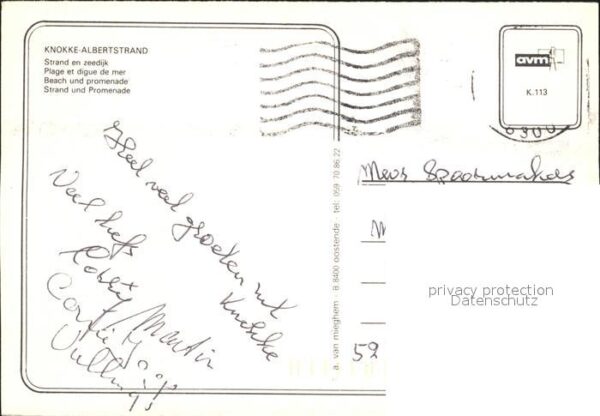 KNOKKE-ALBERTSTRAND
Strand en zeedijk
Plage et digue de mer
Beach und promenade
Strand und Promenade
avm
K.113
Heel veel groeten uit
Knokke
Veel liefs
Martin
Mevr Spoormakers
M
privacy protection
Datenschutz
52
a. van mieghem - B 8400 oostende - tel: 059 70 86 22